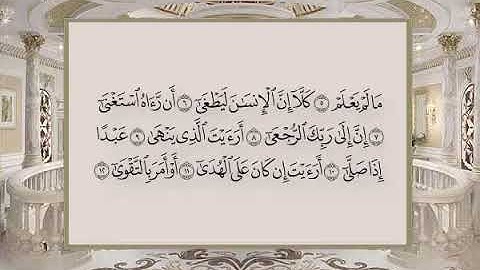 مَا لَمْ يَعْلَمْ ٥ كَلَّآ إِنَّ ٱلْإِنسَٰنَ لَيَطْغَىٰٓ ٦ أَن رَّءَاهُ ٱسْتَغْنَىٰٓ
٧ إِنَّ إِلَىٰ رَبِّكَ ٱلرُّجْعَىٰٓ ٨ أَرَءَيْتَ ٱلَّذِى يَنْهَىٰ ٩ عَبْدًا
إِذَا صَلَّىٰٓ ١٠ أَرَءَيْتَ إِن كَانَ عَلَى ٱلْهُدَىٰٓ ١١ أَوْ أَمَرَ بِٱلتَّقْوَىٰٓ ١٢